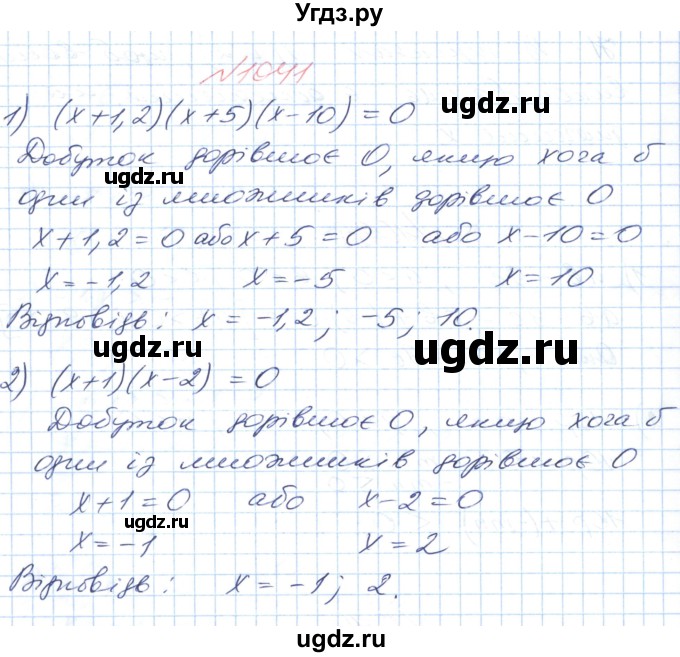 Угдз.ру
№1041
1) (x+1,2)(x+5)(x-10)=0
Добуток дорівнює 0, якщо хоча б
один із множників дорівнює 0
x+1,2=0 або x+5=0 або x-10=0
x=-1,2 x=-5 x=10
Відповідь: x=-1,2; -5; 10.
2) (x+1)(x-2)=0
Добуток дорівнює 0, якщо хоча б
один із множників дорівнює 0
x+1=0 або x-2=0
x=-1 x=2
Відповідь: x=-1; 2.
ugdz.ru
ugdz.ru
ugdz.ru
ugdz.ru
ugdz.ru
ugdz.ru
ugdz.ru